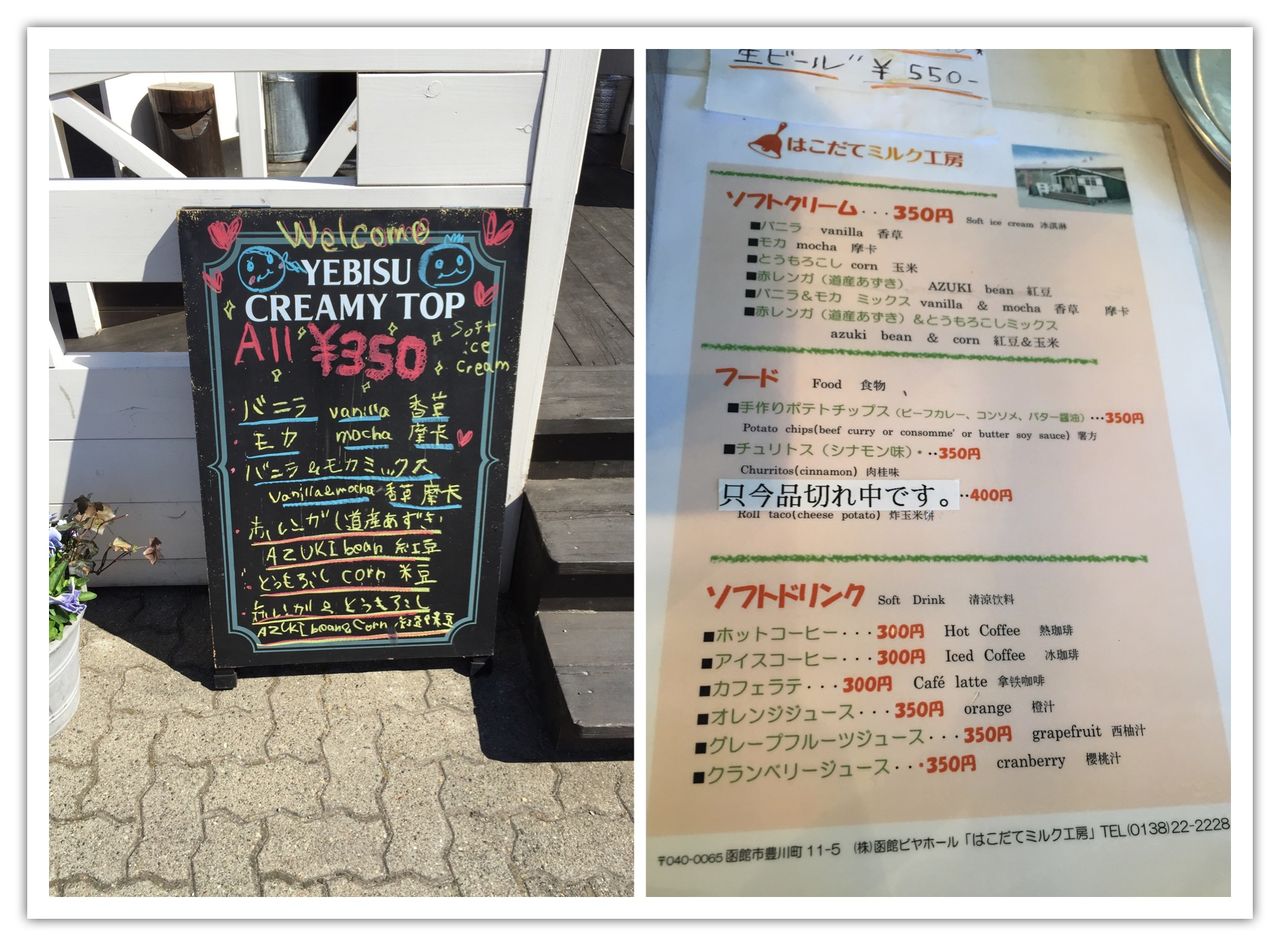 Welcome
YEBISU
CREAMY TOP
All ¥350
Soft
ice
cream
バニラ vanilla 香草
モカ mocha 摩卡
バニラ&モカミックス
vanilla&mocha 香草 摩卡
赤レンガ(道産あずき)
AZUKI bean 紅豆
とうもろこし corn 米豆
赤レンガ& とうもろこし
AZUKI bean&Corn
生ビール" ¥550-
はこだてミルク工房
ソフトクリーム・・・350円 Soft ice cream 冰淇淋
■バニラ vanilla 香草
■モカ mocha 摩卡
■とうもろこし corn 玉米
■赤レンガ(道産あずき) AZUKI bean 紅豆
■バニラ&モカ ミックス vanilla & mocha 香草 摩卡
■赤レンガ(道産あずき)&とうもろこしミックス
azuki bean & corn 紅豆&玉米
フード Food 食物
■手作りポテトチップス(ビーフカレー、コンソメ、バター醤油)・・・350円
Potato chips(beef curry or consomme' or butter soy sauce) 薯方
■チュリトス(シナモン味)・・・350円
Churritos(cinnamon) 肉桂味
只今品切れ中です。・・400円
Roll taco(cheese potato) 炸玉米饼
ソフトドリンク Soft Drink 清涼饮料
■ホットコーヒー・・・300円 Hot Coffee 熱珈琲
■アイスコーヒー・・・300円 Iced Coffee 冰珈琲
■カフェラテ・・・300円 Café latte 拿铁咖啡
■オレンジジュース・・・350円 orange 橙汁
■グレープフルーツジュース・・・350円 grapefruit 西柚汁
■クランベリージュース・・・350円 cranberry 櫻桃汁
〒040-0065 函館市豊川町 11-5 (株)函館ビヤホール「はこだてミルク工房」TEL(0138)22-2228